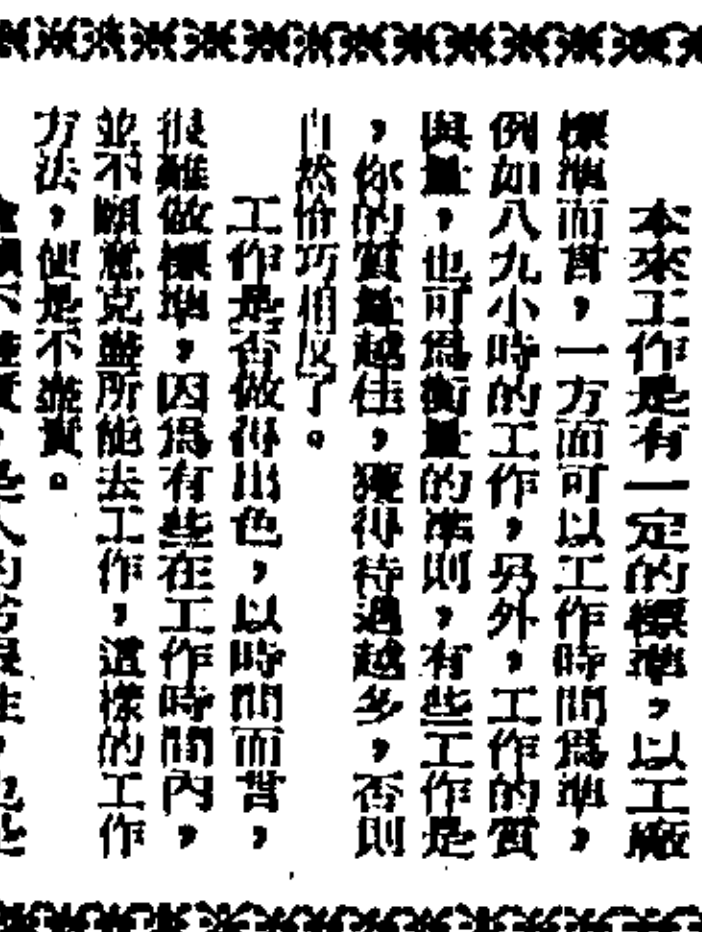 本來工作是有一定的標準，以工廠
標準而言，一方面可以工作時間爲準，
例如八九小時的工作，另外，工作的質
與量，也可爲衡量的準則，有些工作是
，你的質量越佳，獲得待遇越多，否則
自然恰巧相反了。
工作是否做得出色，以時間而言，
很難做標準，因爲有些在工作時間內，
並不願意克盡所能去工作，這樣的工作
方法，便是不盡責。
不盡責，是人的劣根性，也是